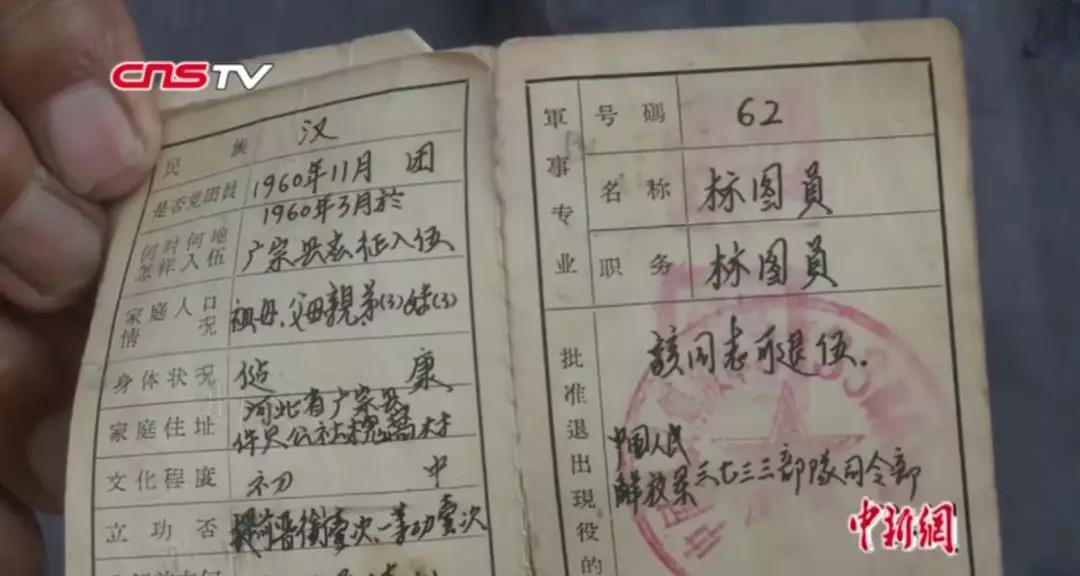 CNSTV
民族 汉
是否党团员 1960年11月 团
何时何地怎样入伍 1960年3月於
广宗县应征入伍
家庭人口情况 祖母、父母親、弟(3)妹(3)
身体状况 健康
家庭住址 河北省广宗县
件只公社槐窩村
文化程度 初中
立功否 提前晋衔壹次、一等功壹次
軍事专业
号码 62
名称 标图員
职务 标图員
批准退出現役的
该同志可退伍.
中国人民
解放军三七三三部隊司令部
中新網